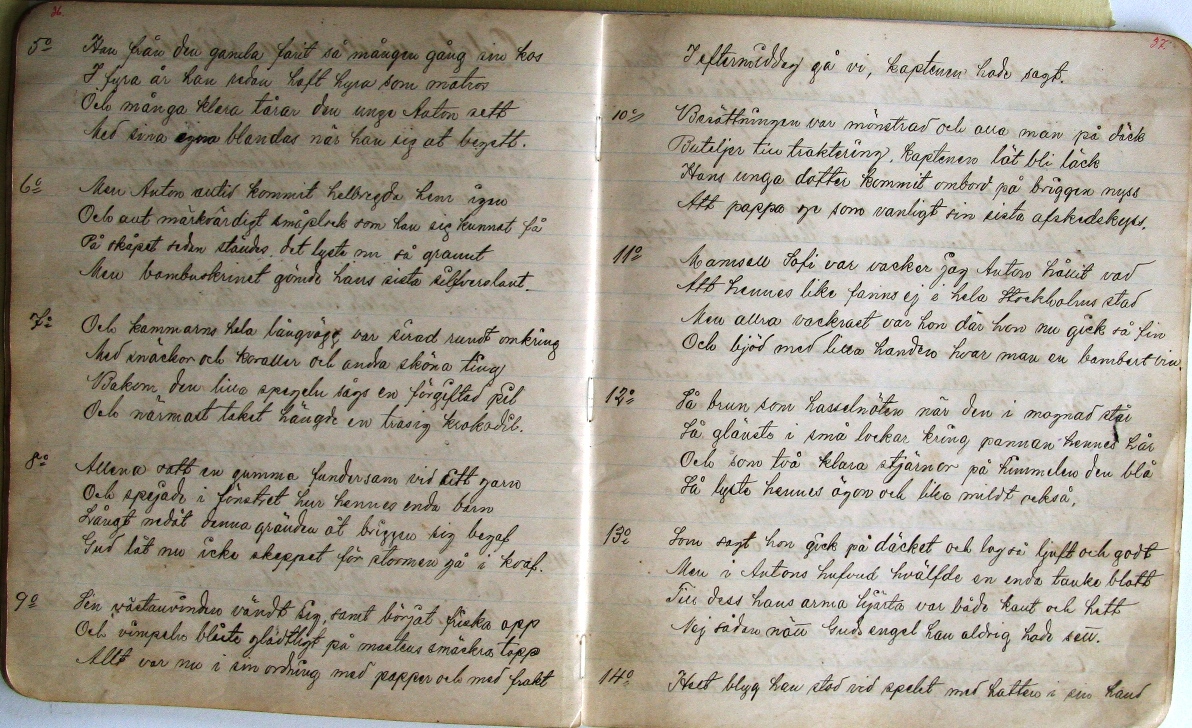 36.
5º Han från den gamla farit så mången gång sin kos
I fyra år han sedan haft hyra som matros
Och många klara tårar den unge Anton sett
Med sina egna blandas när han sig åt begett.
6º Men Anton alltid kommit helbregda hem igen
Och allt märkvärdigt småplock som han sig kunnat få
På skåpet sedan ståndes, det lyste nu så grannt
Men bambuskrinet gömde hans sista silfverslant.
7º Och kammarns hela långvägg var sirad rundt omkring
Med snäckor och koraller och andra sköna ting
Bakom den lilla spegeln sågs en förgiftad pil
Och närmast taket hängde en trasig krokodil.
8º Allena satt en gumma fundersam vid sitt garn
Och spejade i fönstret hur hennes enda barn
Långt nedåt denna gränden åt briggen sig begaf
Gud låt nu icke skeppet för stormen gå i kvaf.
9º Sen västanvinden vändt sig, samt börjat friska opp
Och vimpeln blåste glädtligt på mastens smäckra topp
Allt var nu i sin ordning med papper och med frakt
37.
I eftermiddag gå vi, kaptenen hade sagt.
10º Besättningen var mönstrad och alla man på däck
Buteljer till traktering, kaptenen lät bli läck
Hans unga dotter kommit ombord på briggen nyss
Att pappa ge som vanligt sin sista afskedskyss.
11º Mamsell Sofi var vacker jag Anton hållit vad
Att hennes like fanns ej i hela Stockholms stad
Men allra vackrast var hon där hon nu gick så fin
Och bjöd med lilla handen hvar man en bambert vin.
12º Så brun som hasselnöten när den i mognad står
Så glänste i små lockar kring pannan hennes hår
Och som två klara stjärnor på himmelen den blå
Så lyste hennes ögon och lika mildt också.
13º Som sagt hon gick på däcket och log så ljuft och godt
Men i Antons hufvud hvälfde en enda tanke blott
Till dess hans arma hjärta var både kallt och hett
Nej sådan nätt Guds engel han aldrig hade sett.
14º Helt blyg han stod vid spelet med hatten i sin hand